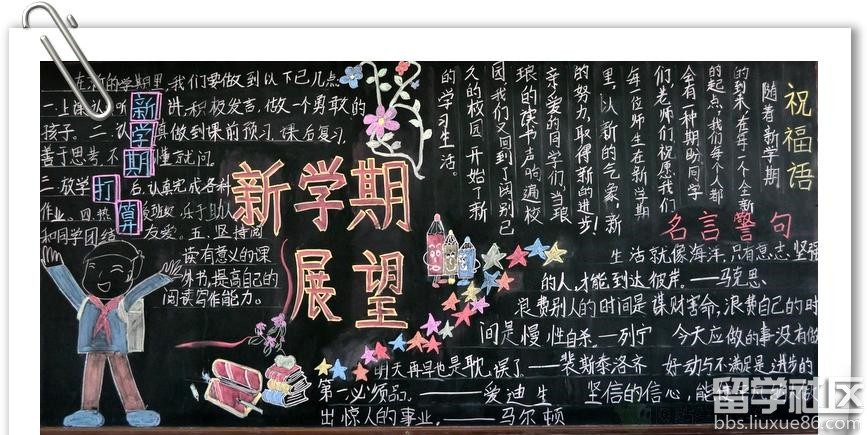 新学期
展望
新学期打算
在新的学期里,我们要做到以下几点
一.上课认 听讲,积极发言,做一个勇敢的
孩子。二.认真做到课前预习,课后复习,
善于思考,不懂就问。
三.放学 后,认真完成各种
作业。四.热 班级,乐于助人
和同学团结友爱。五.坚持阅
读有意义的课
外书,提高自己的
阅读写作能力。
祝福语
随着新学期
的到来,在每一个全新
的起点,我们每个人都
会有一种期盼,同学
们,老师们祝愿我们
每一位师生在新学期
里,以新的气象,新
的努力,取得新的进步!
亲爱的同学们,当琅
琅的读书声响遍校
园,我们又回到了阔别已
久的校园,开始了新
的学习生活。
名言警句
生活就像海洋,只有意志坚强
的人,才能到达彼岸。——马克思
浪费别人的时间是谋财害命,浪费自己的时
间是慢性自杀。—列宁 今天应做的事没有做
明天再早也是耽误了——裴斯泰洛齐 好动与不满足是进步的
第一必须品。——爱迪生 坚信的信心,能使 做
出惊人的事业。——马尔顿
留学社区
bbs.liuxue86.com